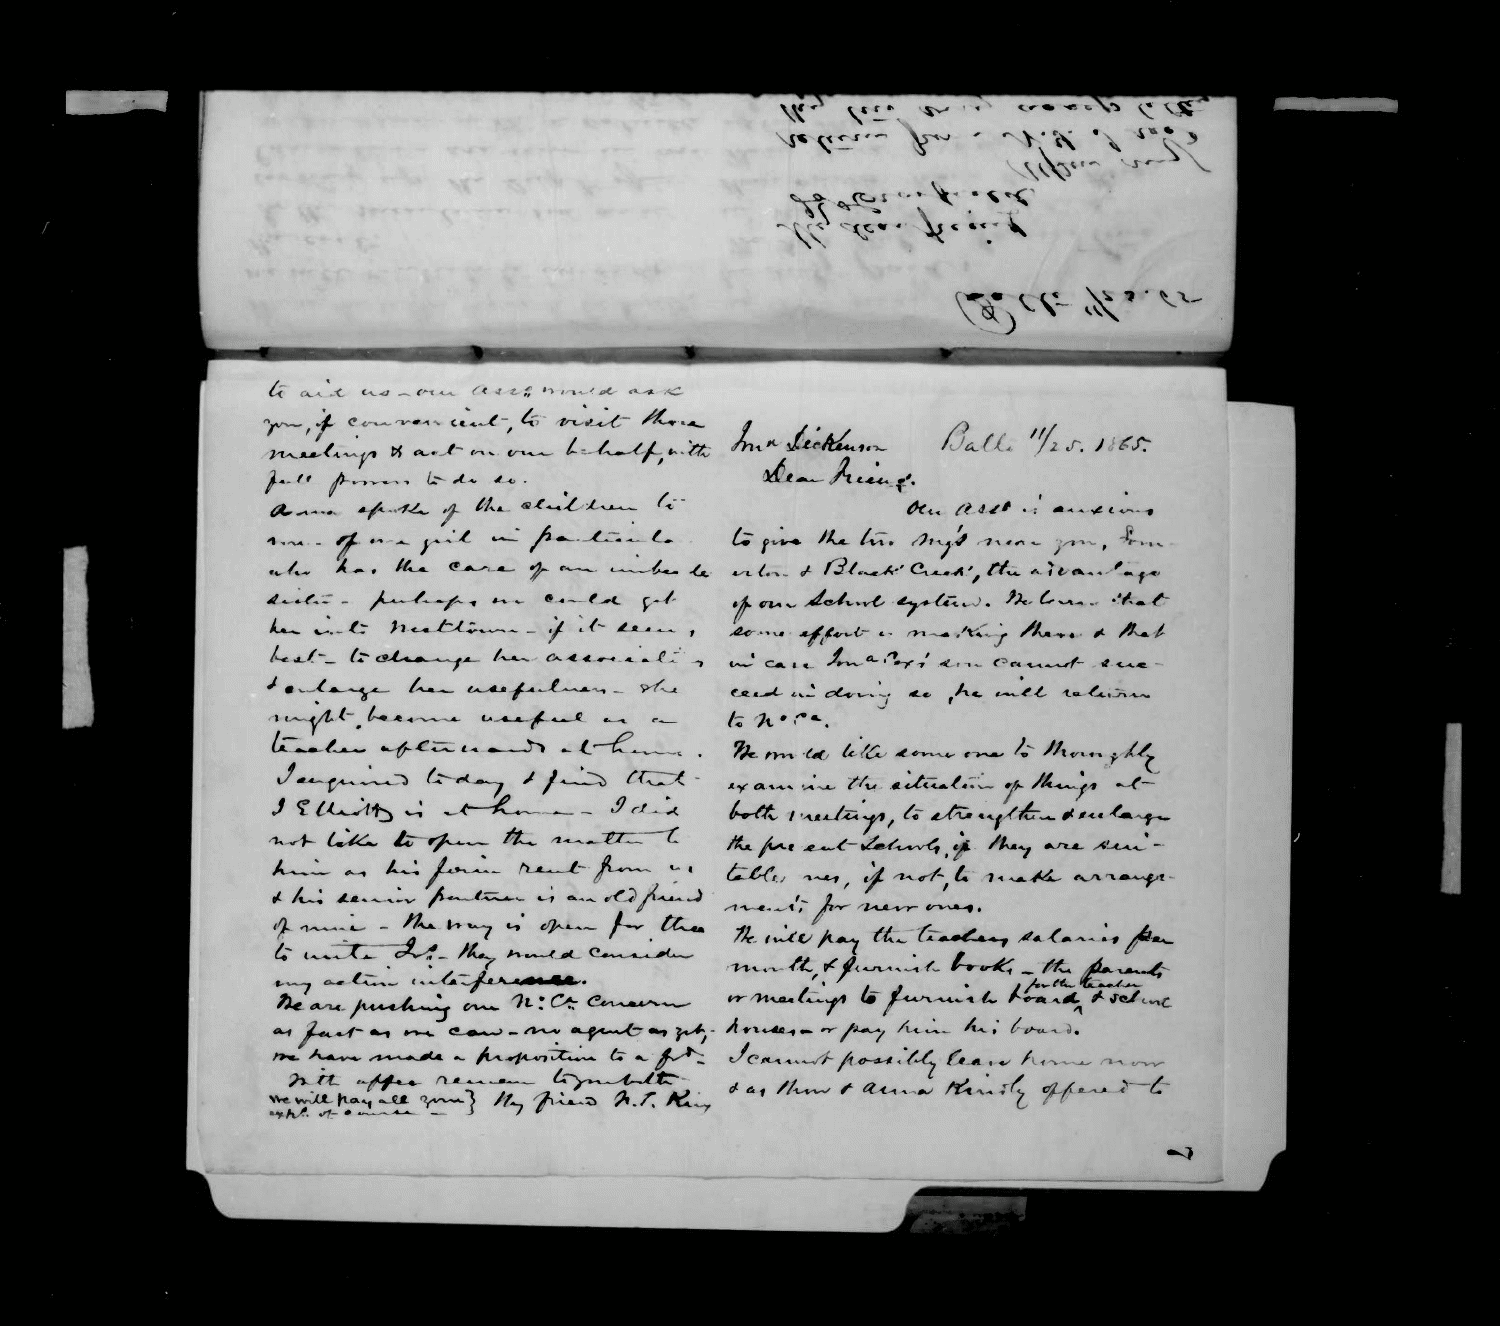 Balto 11/25. 1865.
Jona Dickenson
Dear Friend.
Our Assn is anxious
to give the two Mgs near you, Som-
erton & Black Creek, the advantage
of our School system. We learn that
some effort is making there & that
in case Jona Cox's son cannot suc-
ceed in doing so, he will return
to No. Ca.
We would like some one to thoroughly
examine the situation of things at
both meetings, to strengthen & enlarge
the present Schools, if they are sui-
table ones, if not, to make arrange-
ments for new ones.
We will pay the teachers salaries per
month, & furnish books - the parents
or meetings to furnish board for the teacher & school
houses - or pay him his board.
I cannot possibly leave home now
& as thou & Anna kindly offered to
to aid us - our Assn would ask
you, if convenient, to visit those
meetings & act on our behalf, with
full powers to do so.
Anna spoke of the children to
me - of one girl in particular
who has the care of an imbecile
sister - perhaps we could get
her into Westtown - if it seems
best - to change her associations
& enlarge her usefulness - she
might become useful as a
teacher afterwards at home.
I enquired today & find that
I Elliott is at home - I did
not like to open the matter to
him as his firm rent from us
& his senior partner is an old friend
of mine - the way is open for thee
to write Jos. - they would consider
my action interference.
We are pushing our No. Ca. Concern
as fast as we can - no agent as yet,
we have made a proposition to a frd -
With affec remem to you both
we will pay all your } thy friend F. T. King
exps. of course -
7
Balto 11/25.65
My dear friend
Upon my
return from N.Y. I